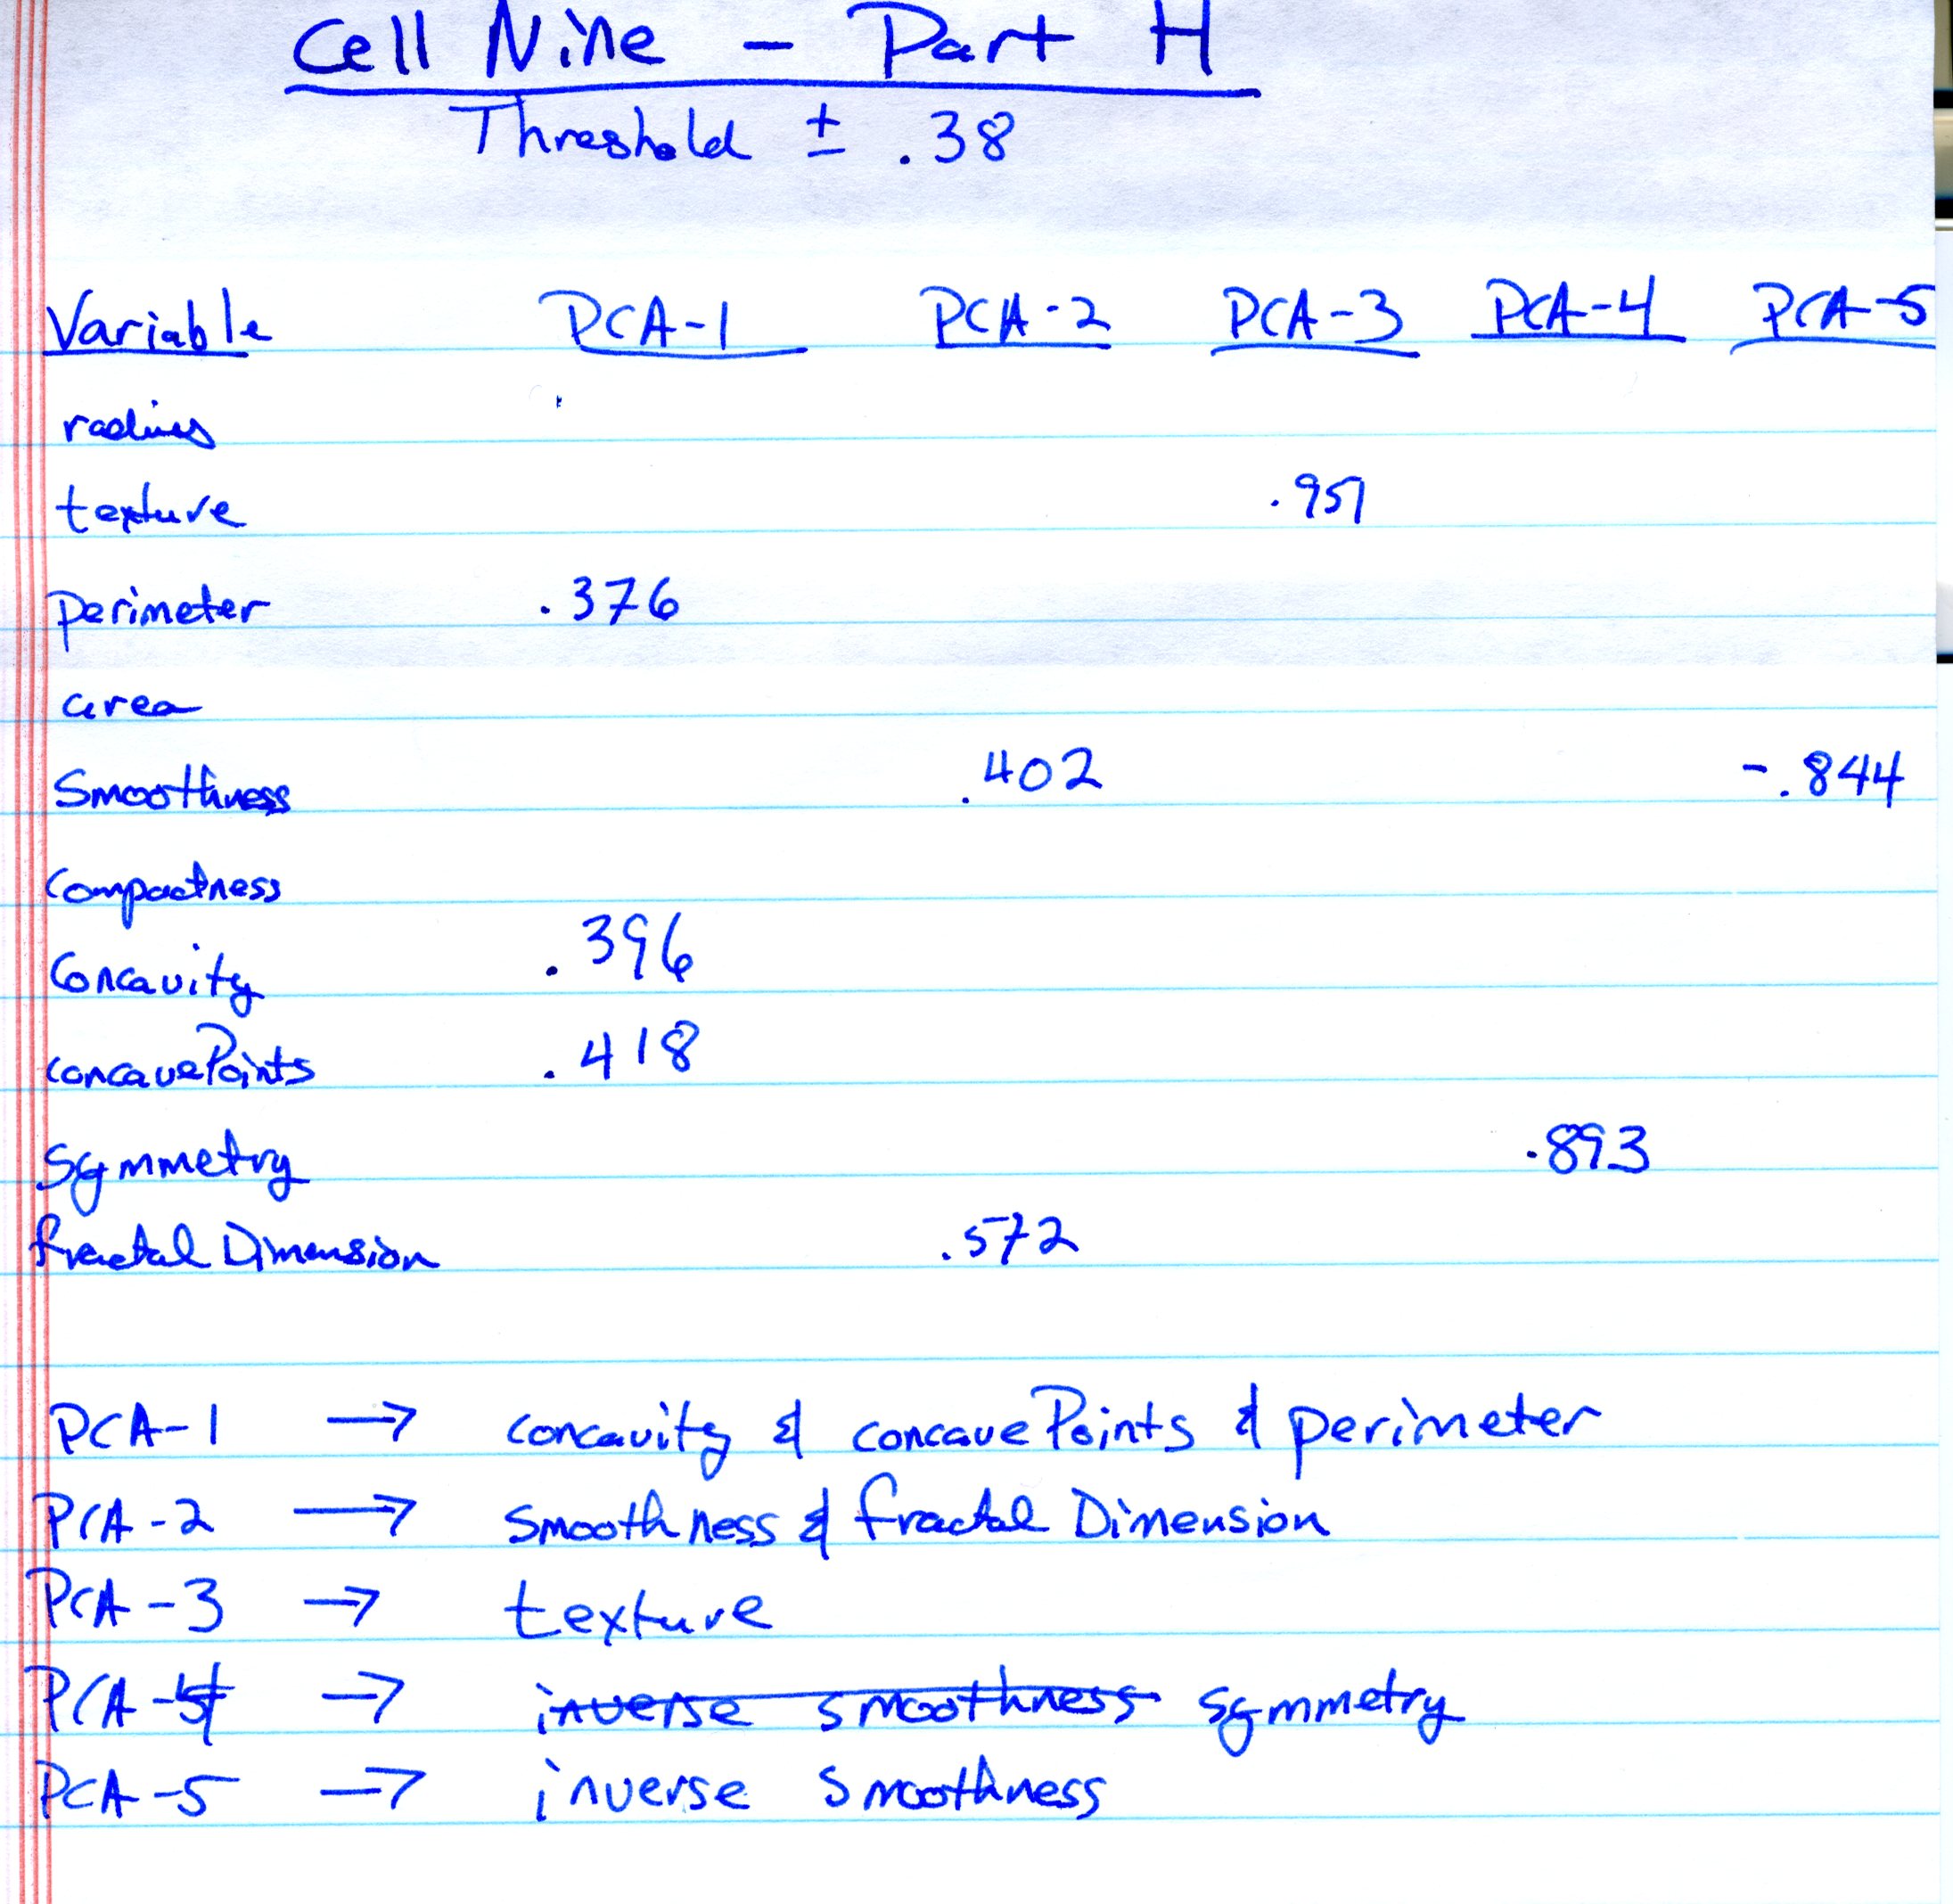 Cell Nine - Part H
Threshold ± .38
Variable PCA-1 PCA-2 PCA-3 PCA-4 PCA-5
radius
texture .951
perimeter .376
area
Smoothness .402 -.844
Compactness
Concavity .396
concavePoints .418
Symmetry .893
fractal Dimension .572
PCA-1 → concavity & concavePoints & perimeter
PCA-2 → smoothness & fractal Dimension
PCA-3 → texture
PCA-4 → inverse smoothness symmetry
PCA-5 → inverse smoothness